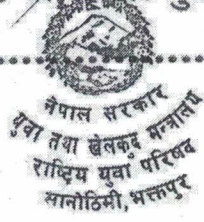 नेपाल सरकार
युवा तथा खेलकुद मन्त्रालय
राष्ट्रिय युवा परिषद
सानोठिमी, भक्तपुर